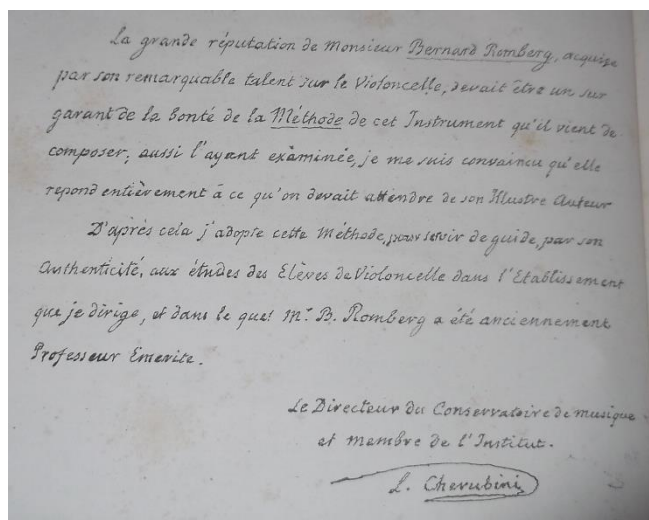 La grande réputation de Monsieur Bernard Romberg, acquise
par son remarquable talent sur le Violoncelle, devait être un sur
garant de la bonté de la Méthode de cet Instrument qu'il vient de
composer; aussi l'ayant exàminée, je me suis convaincu qu'elle
repond entièrement à ce qu'on devait attendre de son Illustre Auteur
D'après cela j'adopte cette Méthode, pour servir de guide, par son
Authenticité, aux études des Elèves de Violoncelle dans l'Etablissement
que je dirige, et dans le quel Mr. B. Romberg a été anciennement
Professeur Emerite.
Le Directeur du Conservatoire de musique
et membre de l'Institut.
L. Cherubini